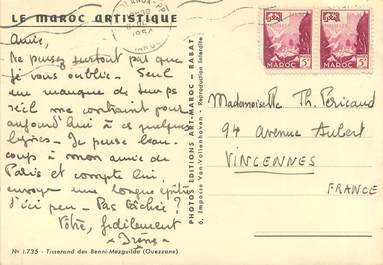 LE MAROC ARTISTIQUE
Amie,
Ne pensez surtout pas que
je vous oublie. Seul
un manque de temps
réel me contraint pour
aujourd'hui à ces quelques
lignes. Je pense beau-
coup à mon amie de
Paris et compte lui
envoyer une longue épître
d'ici peu. Pas fâchée ?
Vôtre, fidèlement
N° 1.735 - Tisserand des Benni-Mezguilda (Ouezzane)
PHOTOS EDITIONS ART-MAROC - RABAT
6, Impasse Van-Vollenhoven - Reproduction Interdite
MAROC 5F
MAROC 5F
Mademoiselle Th. Pericaud
94 Avenue Aubert
VINCENNES
FRANCE